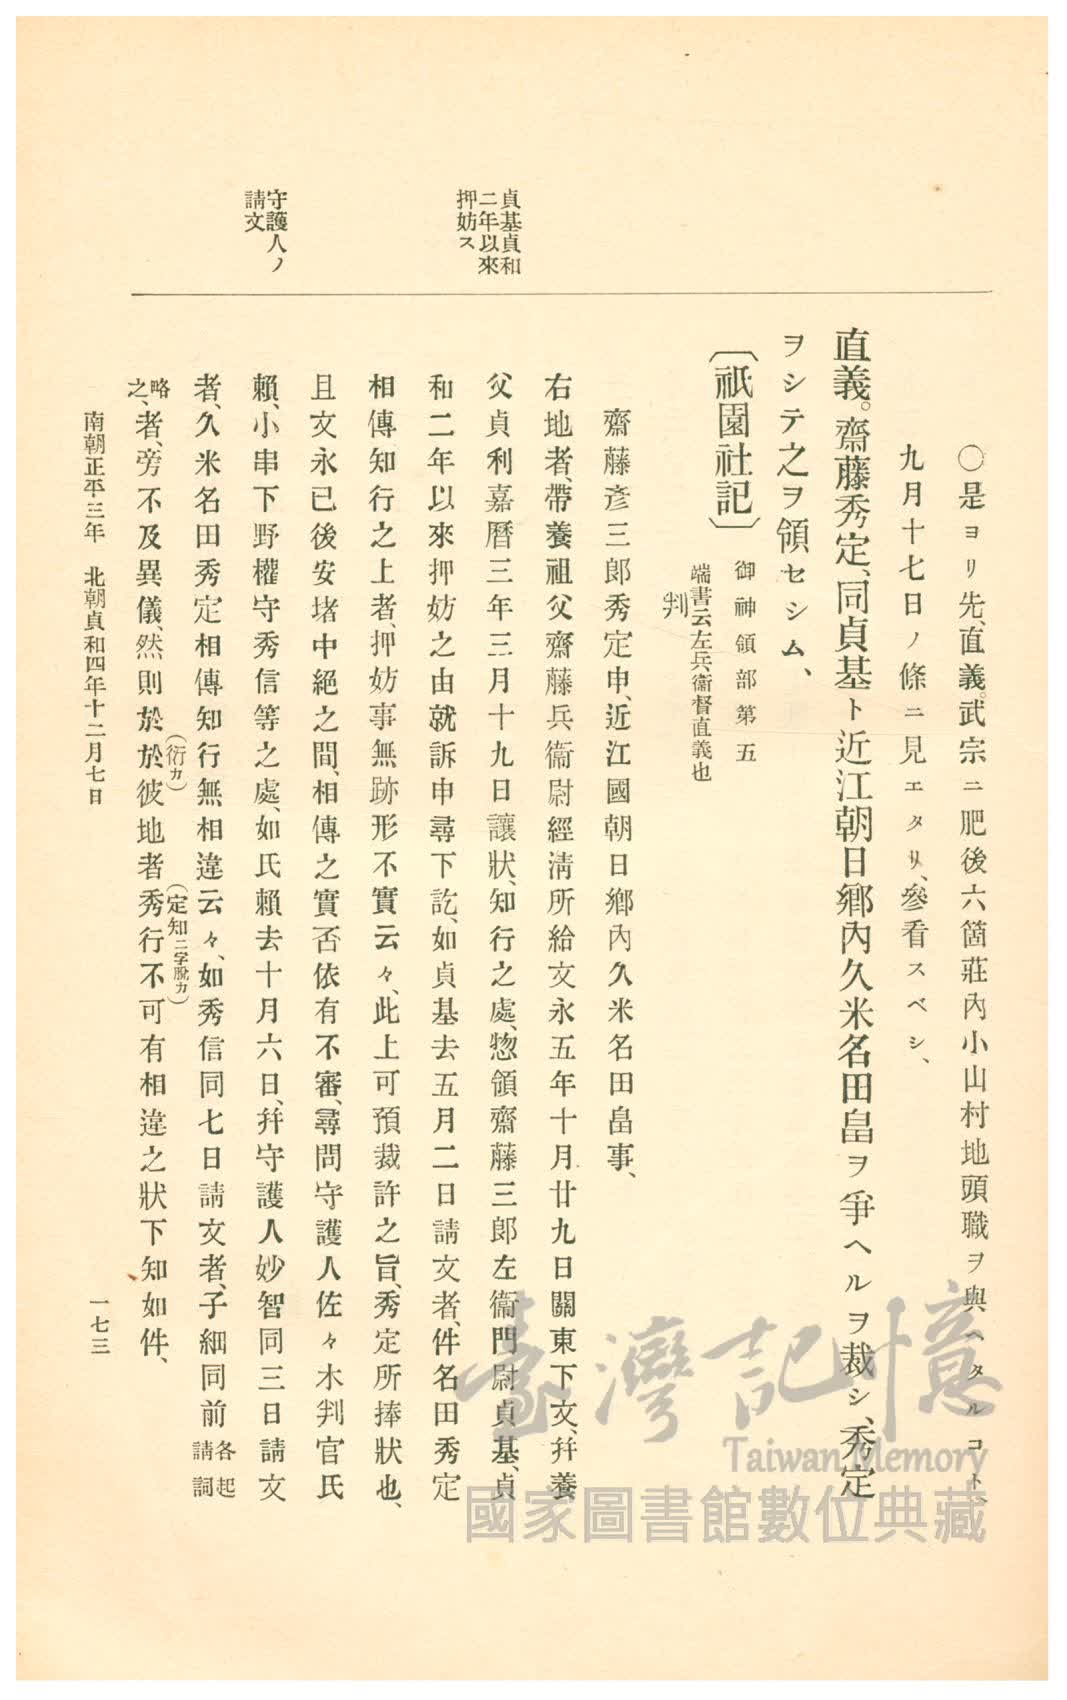 〇是ヨリ先、直義。武宗ニ肥後六箇莊內小山村地頭職ヲ與ヘタルコト、
九月十七日ノ條ニ見エタリ、參看スベシ、
直義。齋藤秀定、同貞基ト近江朝日鄕內久米名田畠ヲ爭ヘルヲ裁シ、秀定
ヲシテ之ヲ領セシム、
〔祇園社記〕御神領部第五
端書云左兵衞督直義也
判
齋藤彥三郞秀定申、近江國朝日鄕內久米名田畠事、
右地者、帶養祖父齋藤兵衞尉經淸所給文永五年十月廿九日關東下文、幷養
父貞利嘉曆三年三月十九日讓狀、知行之處、惣領齋藤三郞左衞門尉貞基、貞
和二年以來押妨之由就訴申尋下訖、如貞基去五月二日請文者、件名田秀定
相傳知行之上者、押妨事無跡形不實云々、此上可預裁許之旨、秀定所捧狀也、
且文永已後安堵中絕之間、相傳之實否依有不審、尋問守護人佐々木判官氏
賴、小串下野權守秀信等之處、如氏賴去十月六日、幷守護人妙智同三日請文
者、久米名田秀定相傳知行無相違云々、如秀信同七日請文者、子細同前各起請詞
略之、者、旁不及異儀、然則於於(衍カ)彼地者秀(定知二字脫カ)行不可有相違之狀下知如件、
貞基貞和
二年以來
押妨ス
守護人ノ
請文
南朝正平三年 北朝貞和四年十二月七日
一七三
臺灣記憶
Taiwan Memory
國家圖書館數位典藏